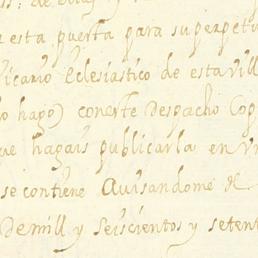 de
esta puerta para superpetu
icario Eclesiastico de estavill
conerte Despacho Cop
ue hagais publicarla en vr
se contiene Auisandome de
Demill y Seiscientos y setent